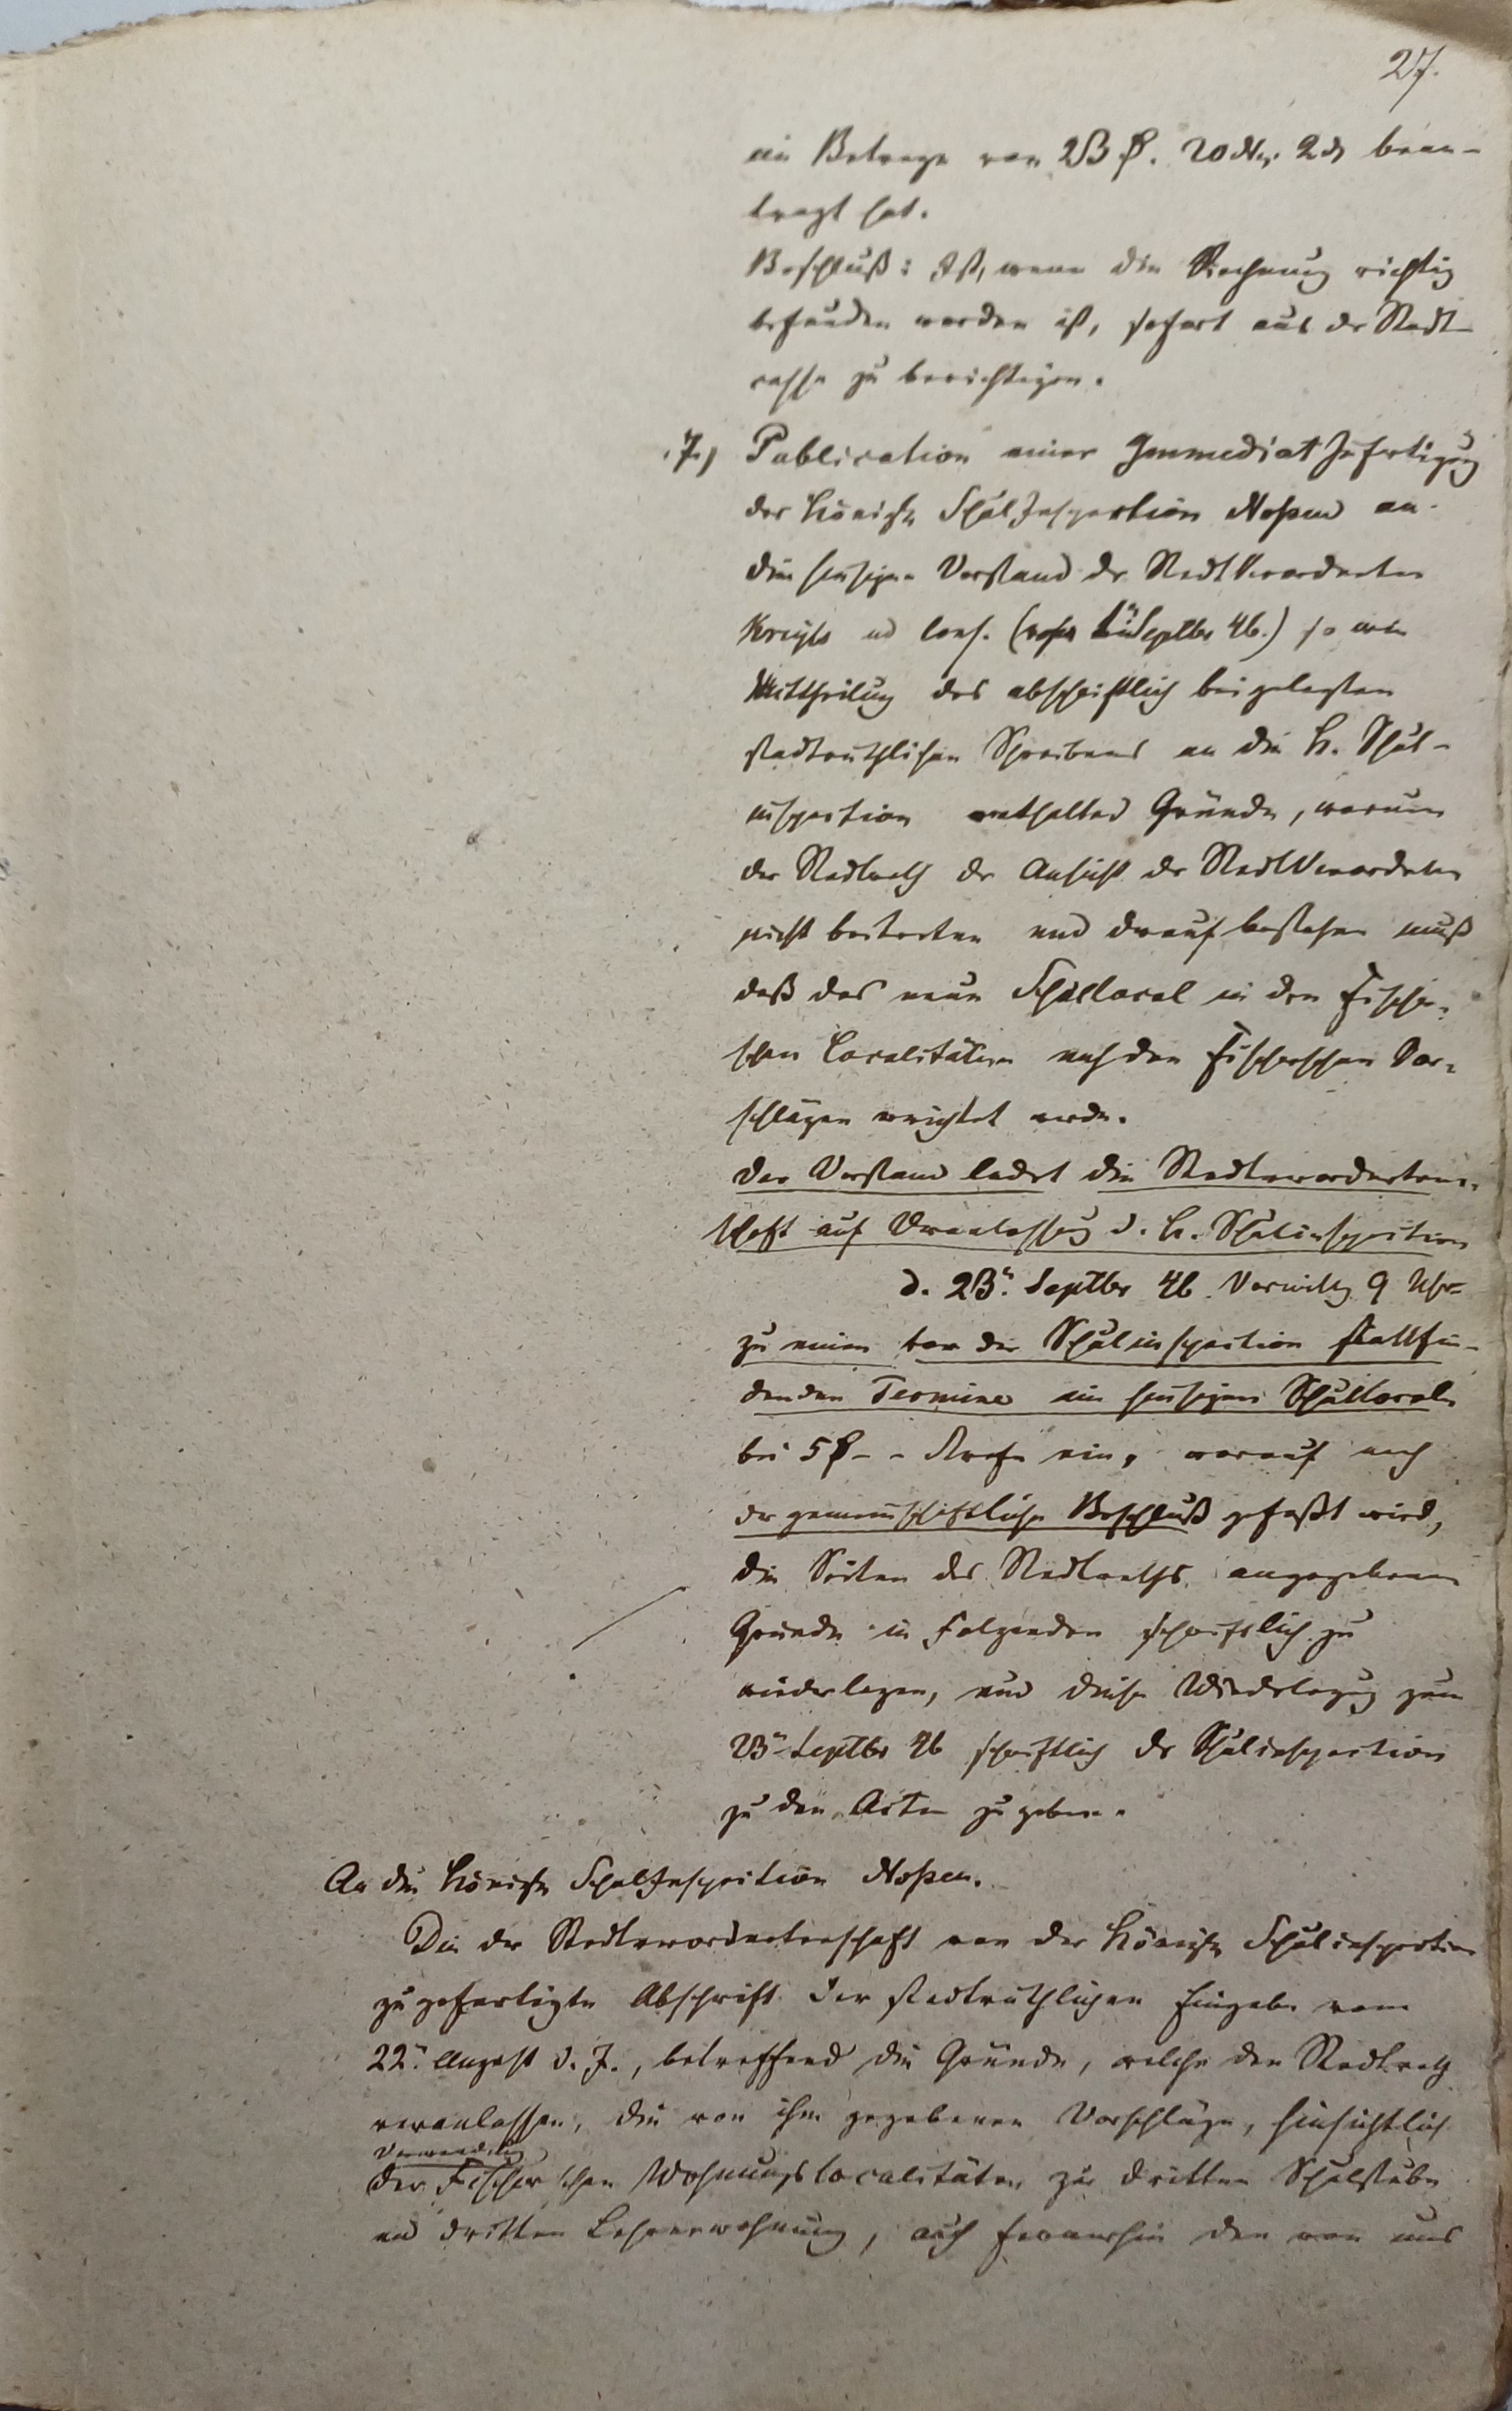 27.
im Betrage von 23 ₰. 20 Ngr. 2 d bean-
tragt hat.
Beschluß: Ist, wenn die Rechnung richtig
befunden worden ist, sofort aus der Stadt
casse zu berichtigen.
7., Publication einer Immediat Zufertigung
der Königl. Schul Inspection Noßen an
den hiesigen Vorstand der Stadt Verordneten
Septbr 46.) so wie
Mittheilung des abschriftlich beigelegten
stadträthlichen Schreibens an die K. Schul-
inspection enthaltend Gründe, warum
der Stadtrath der Ansicht der Stadt Verordneten
nicht beitreten und darauf bestehen muß
daß das neue Schullocal in den Fischer-
schen Localitäten nach den Fischerschen Vor-
schlägen errichtet werde.
Der Vorstand ladet die Stadtverordneten-
schaft auf Veranlassung d. K. Schulinspection
d. 23n. Septbr 46. Vormittg 9 Uhr
zu einem von der Schulinspection stattfin-
denden Termine im hiesigen Schullocale
bei 5 ₰ - - Strafe ein, worauf noch
der gemeinschaftliche Beschluß gefaßt wird,
die Seiten des Stadtraths angegebenen
Gründe in Folgenden schriftlich zu
wiederlegen, und diese Wiederlegung zum
23n Septbr 46 schriftlich der Schulinspection
zu den Acten zu geben.
An die Königl. Schul Inspection Noßen.
Die der Stadtverordnetenschaft von der Königl. Schulinspection
zugefertigte Abschrift der stadträthlichen Eingabe vom
22n. August d. J., betreffend die Gründe, welche den Stadtrath
veranlassen, die von ihm gegebenen Vorschläge, hinsichtlich
Verwendung
der Fischer'schen Wohnungslocalitäten zur dritten Schulstube
und dritten Lehrerwohnung, auch fernerhin den von uns